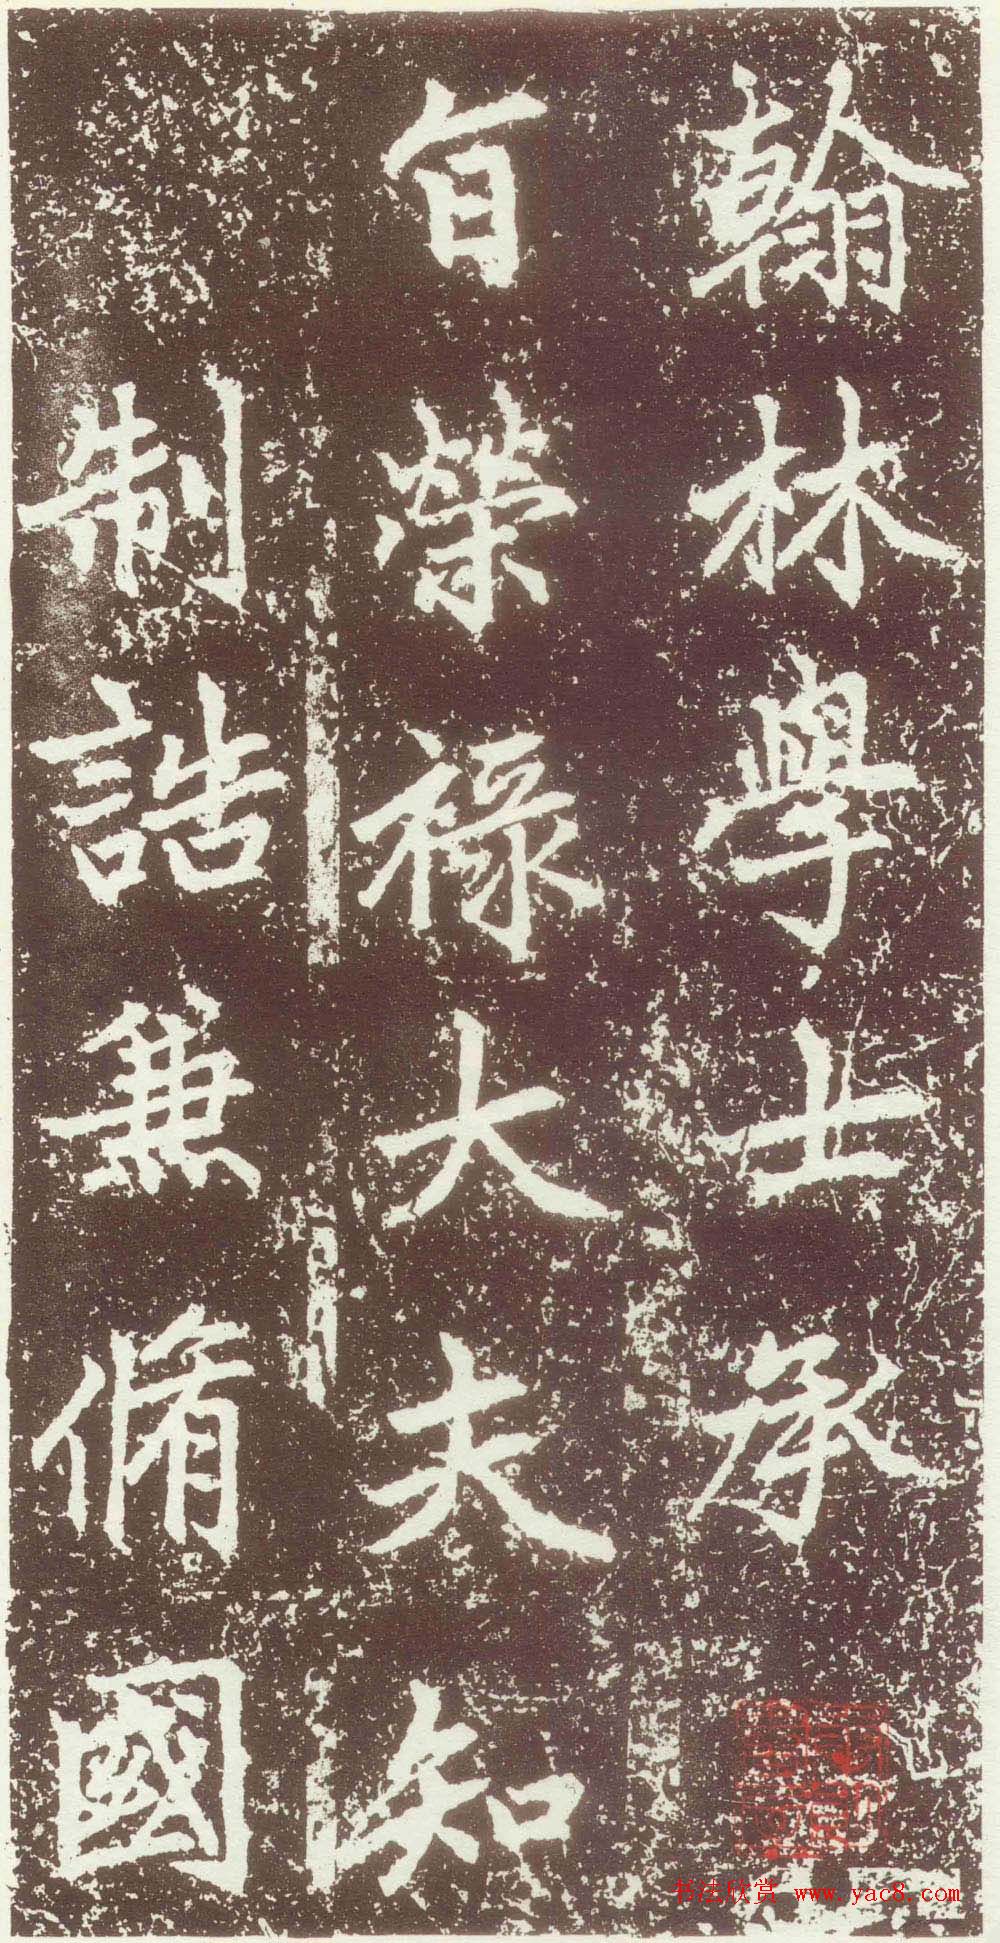 翰林學士承
旨榮祿大夫知
制誥兼脩國
书法欣赏 www.yac8.com